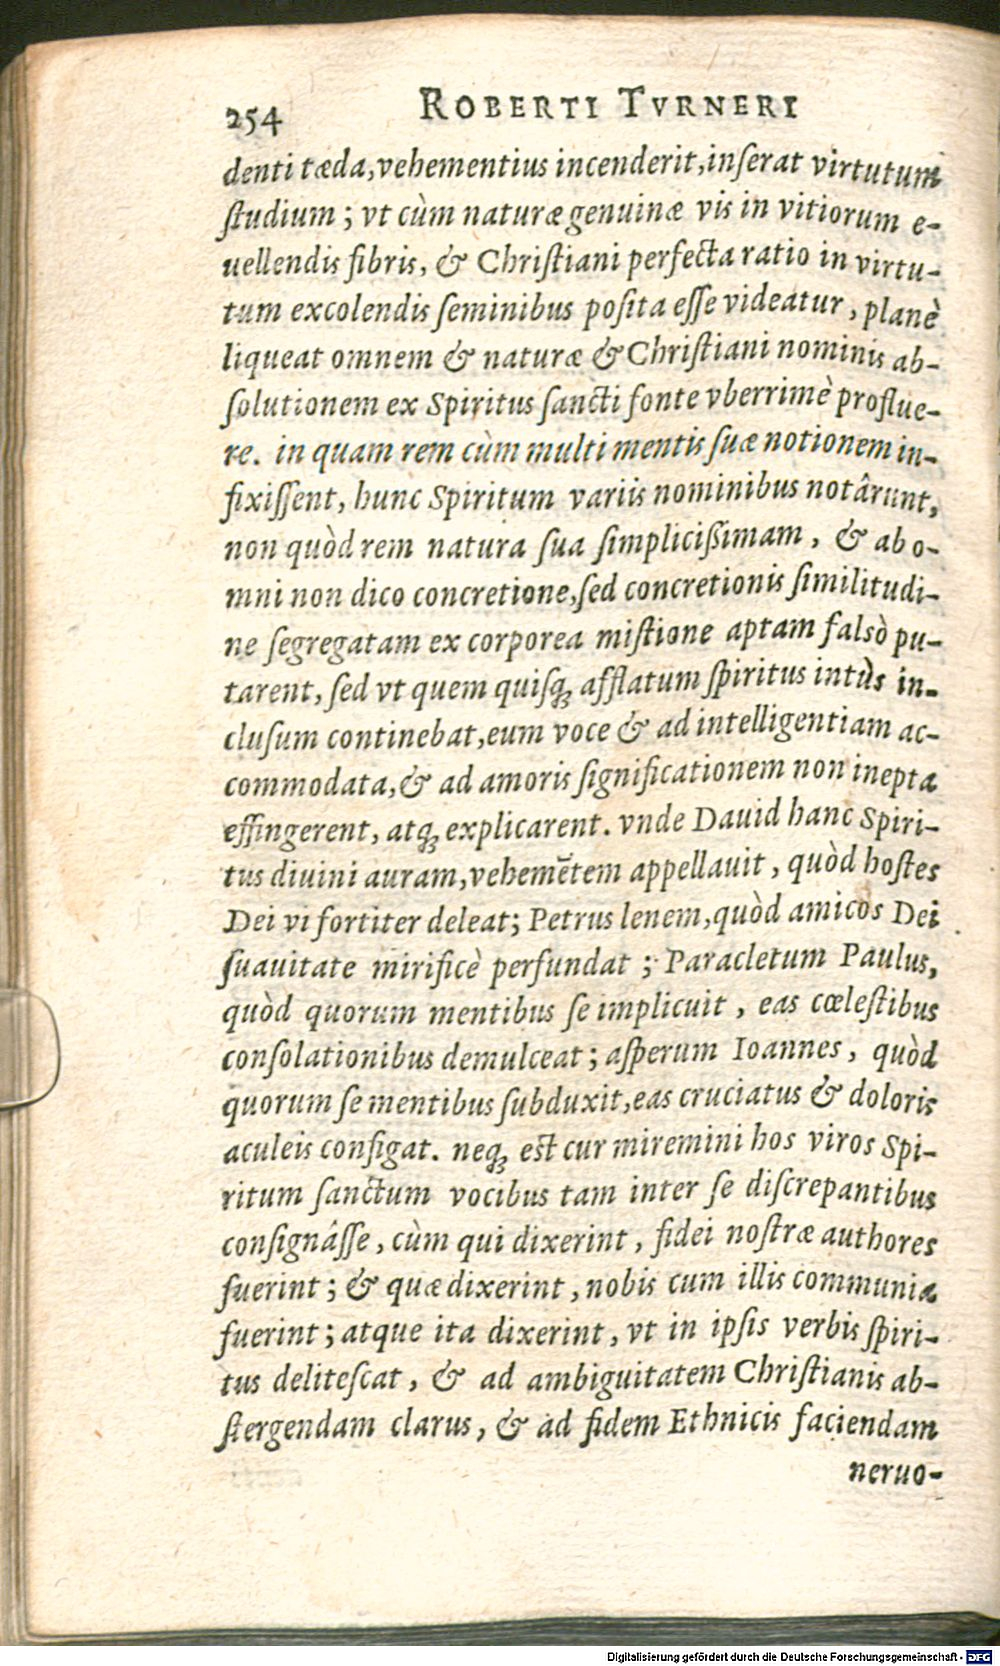 254 ROBERTI TVRNERI
denti tæda, vehementius incenderit, inſerat virtutum
ſtudium; vt cùm naturæ genuinæ vis in vitiorum e-
uellendis fibris, & Chriſtiani perfecta ratio in virtu-
tum excolendis ſeminibus poſita eſſe videatur, planè
liqueat omnem & naturæ & Chriſtiani nominis ab-
ſolutionem ex Spiritus ſancti fonte vberrimè proflue-
re. in quam rem cùm multi mentis ſuæ notionem in-
fixiſſent, hunc Spiritum variis nominibus notârunt,
non quòd rem natura ſua ſimpliciſſimam, & ab o-
mni non dico concretione, ſed concretionis ſimilitudi-
ne ſegregatam ex corporea miſtione aptam falsò pu-
tarent, ſed vt quem quiſq; afflatum ſpiritus intùs in-
cluſum continebat, eum voce & ad intelligentiam ac-
commodata, & ad amoris ſignificationem non inepta
effingerent, atq; explicarent. vnde Dauid hanc Spiri-
tus diuini auram, vehemētem appellauit, quòd hoſtes
Dei vi fortiter deleat; Petrus lenem, quòd amicos Dei
ſuauitate mirificè perfundat; Paracletum Paulus,
quòd quorum mentibus ſe implicuit, eas cœleſtibus
conſolationibus demulceat; aſperum Ioannes, quòd
quorum ſe mentibus ſubduxit, eas cruciatus & doloris
aculeis configat. neq; eſt cur miremini hos viros Spi-
ritum ſanctum vocibus tam inter ſe diſcrepantibus
conſignâſſe, cùm qui dixerint, fidei noſtræ authores
fuerint; & quæ dixerint, nobis cum illis communia
fuerint; atque ita dixerint, vt in ipſis verbis ſpiri-
tus deliteſcat, & ad ambiguitatem Chriſtianis ab-
ſtergendam clarus, & ad fidem Ethnicis faciendam
neruo-
Digitalisierung gefördert durch die Deutsche Forschungsgemeinschaft - DFG